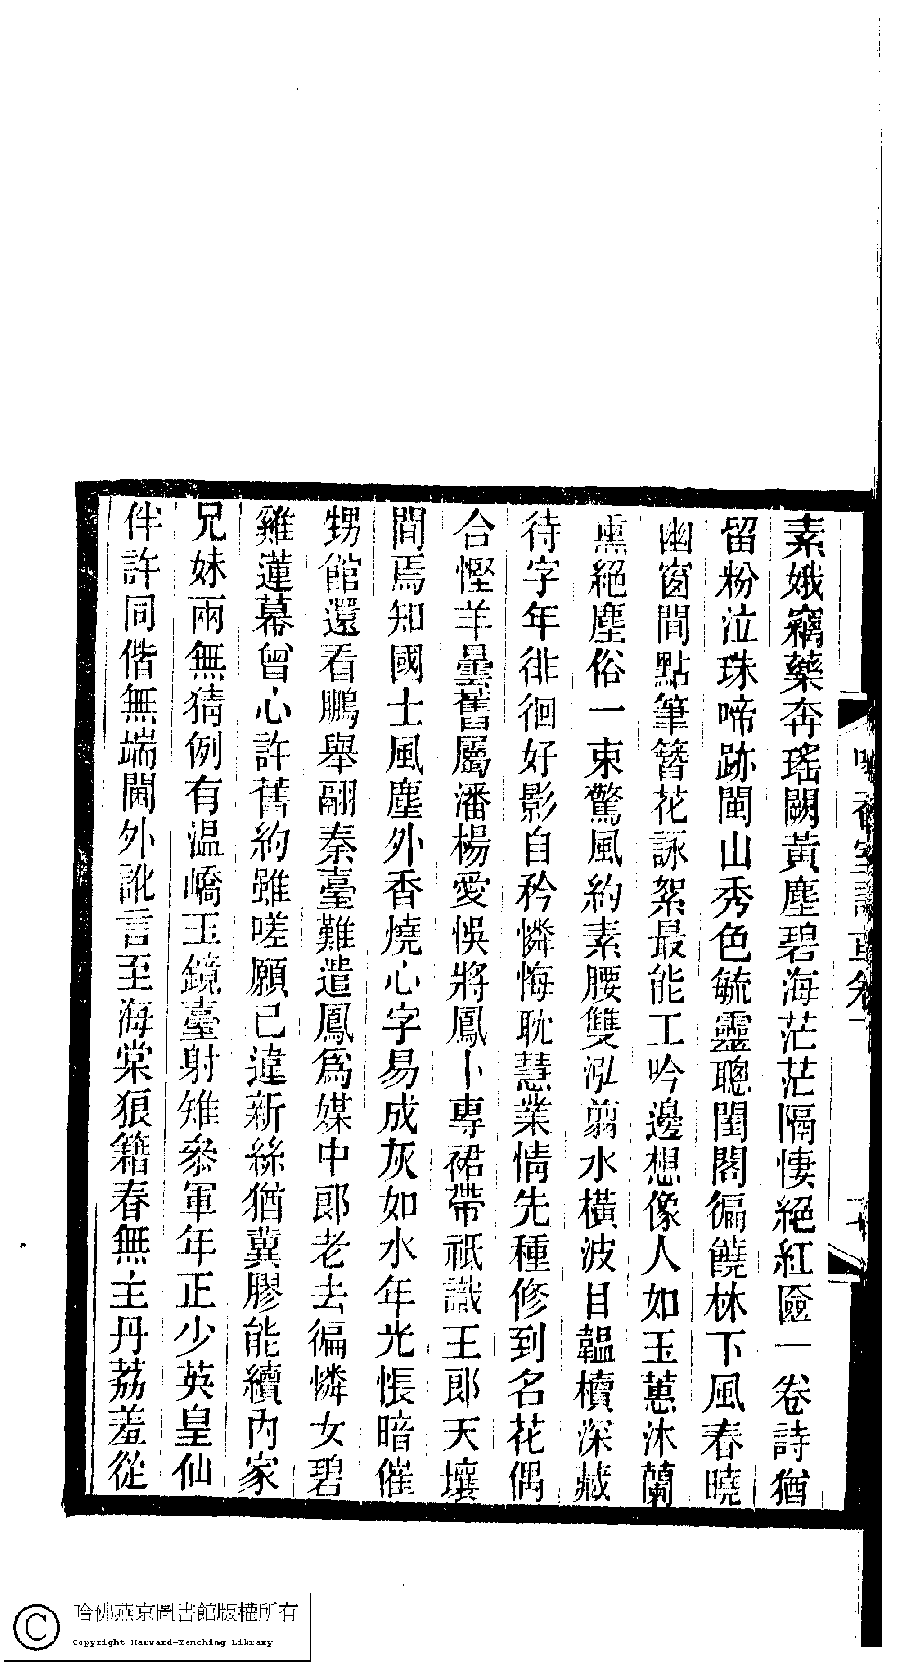 素娥竊藥奔瑤闕黃塵碧海茫茫隔悽絕紅匳一卷詩猶
留粉泣珠啼跡閩山秀色毓靈聰閨閣徧饒林下風春曉
幽窗間點筆簪花詠絮最能工吟邊想像人如玉蕙沐蘭
熏絕塵俗一束驚風約素腰雙泓剪水橫波目韞櫝深藏
待字年徘徊好影自矜憐悔耽慧業情先種修到名花偶
合慳羊曇舊屬潘楊愛悞將鳳卜專裙帶祇識王郎天壤
間焉知國士風塵外香燒心字易成灰如水年光悵暗催
甥館還看鵬舉翮秦臺難遣鳳為媒中郎老去徧憐女碧
雞蓮幕曾心許舊約雖嗟願已違新絲猶冀膠能續內家
兄妹兩無猜例有温嶠玉鏡臺射雉參軍年正少英皇仙
伴許同偕無端閫外訛言至海棠狼籍春無主丹荔羞從
哈佛燕京圖書館版權所有
Copyright Harvard-Yenching Library